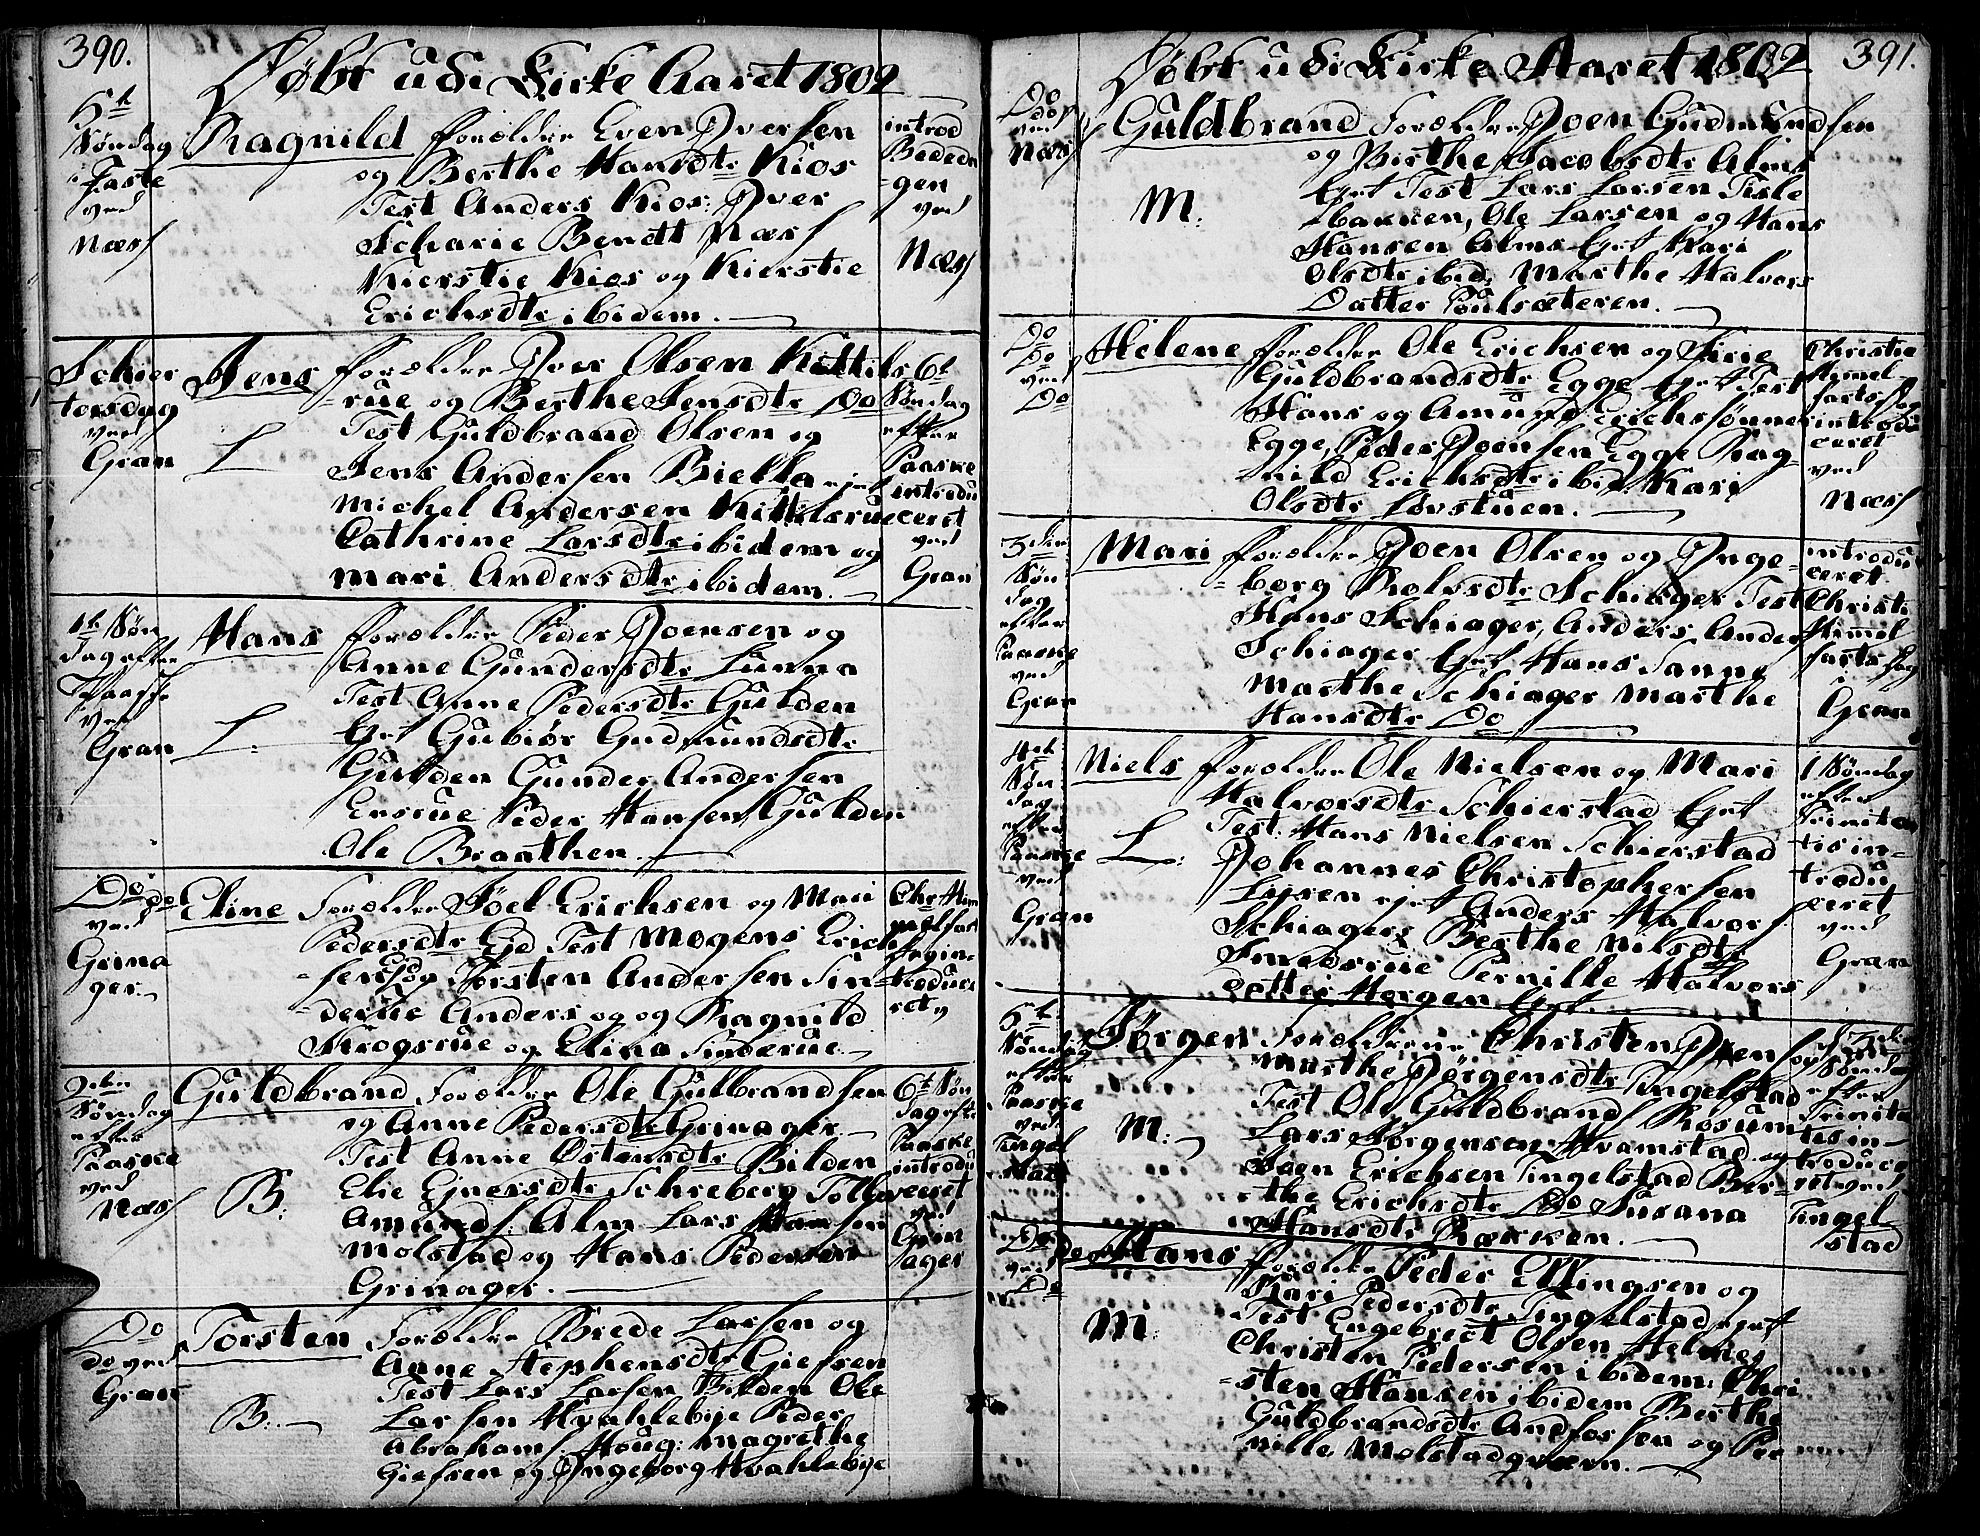 390.
Døbt udi Kirke Aaret 1802
5t
Søndag
i Faste
ved
Næss
Ragnild forældre Even Iversen
og Berthe Hansdtr Kios
Test Anders Kios: Iver
Scharie Berndt Næss
Kierstie Kios og Kierstie
Erichsdtr ibidem.
introd
Bededa
-gen
ved
Næss
Schier
torsdag
ved
Gran
Jens forældre Iver Olsen Kittils
-rue og Berthe Jensdtr Do
L
Test Guldbrand Olsen og
Jens Andersen Biella
Michel Andersen Kittilsrue
Cathrine Larsdtr ibidem og
Mari Andersdtr ibidem.
6t
Søndag
efter
Paaske
introdu
ceret
ved
Gran
1t Søn
dag efter
Paaske
ved
Gran
Hans forældre Peder Joensen og
Anne Gundersdtr Lunna
Test Anne Pedersdtr Gulden
L:
Gubiør Gudmundsdtr
Gulden Gunder Andersen
Ensrue Peder Hansen Gulden
Ole Braathen.
Do do
ved
Grina
ger
Eline Forældre Joel Erichsen og Mari
Pedersdtr Eid Test Mogens Erich
-sen og Torsten Andersen Sin-
-derue Anders og og Ragnild
Krogsrue og Elina Sinderue
Chr Him
melfart
introduce
ret
2den
Søndag
efter
Paaske
ved
Næss
Guldbrand forældre Ole Gulbrandsen
og Anne Pedersdtr Grinager
Test Anne Østensdtr Bilden
B:
Elie Ejnersdtr Schreberg
Amunds: Alm Lars Hansen
Molstad og Hans Pedersen
Grinager.
6t Søn
dag efter
Paaske
introdu
ceret
ved
Grin
ager
Do
do ved
Gran
Torsten Forældre Brede Larsen og
Anne Stephensdtr Giefsen
Test Lars Larsen Bilden Ole
B.
Larsen Hvahlebye Peder
Abrahams: Houg: Magrethe
Giefsen og Ingeborg Hvahlebye
391.
Døbt udi Kirke Aaret 1802
Do
ved
Næss
Guldbrand Forældre Joen Gudmundsen
og Berthe Jacobsdtr Alms
M.
Test Lars Larsen Tesle
Ole Larsen og Hans
Hansen Alms Kari
Olsdtr ibid: Marthe Halvors
Datter Poulsæteren.
Do
Do
ved
Do
Helene forældre Ole Erichsen og Sirie
Guldbrandsdtr Egge Test
Hans og Amund Erichssønner
Egge, Peder Joensen Egge Rag
nild Erichsdtr ibid: Kari
Olsdtr Lovstuen.
Christie
Himmel
farts Dag
introdu
ceret
ved
Næss
3den
Søn
dag
efter
Paaske
ved
Gran
Mari forældre Joen Olsen og Inge-
-borg Rolvsdtr Schiager Test
Hans Schiager, Anders Anders
Schiager Hans Sanne
Marthe Schiager Marthe
Hansdtr Do
introdu
ceret
Christi
Himmel
farts Dag
i
Gran
4t
Søn
dag
efter
Paaske
ved
Gran
Niels forældre Ole Nielsen og Mari
Halvorsdtr Schierstad
L:
Test: Hans Nielsen Schierstad
Johannes Christophersen
Lysen Anders Halvors
Schiager Berthe Nilsdtr
Smedsrue Pernille Halvors
datter Horgen
1 Søndag
efter
Trinita
tis in-
trodu
ceret
ved
Gran
5t
Søndag
efter
Paaske
ved
Tingel
stad
Jørgen Forældrene Christen Ivensen og
Marthe Jørgensdtr Tingelstad
Test Ole Guldbrands Røsum
M:
Lars Jørgensen Hvamstad og
Joen Erichsen Tingelstad Ber-
the Erichsdtr Do Susana
Hansdtr Rækken.
Søndag
efter
Trinita
tis in-
troduce
ret ved
Tingel
stad
Do Do
ved
Do
Hans forældre Peder Ellingsen og
Kari Pedersdtr Tingelstad
M:
Test Engebrect Olsen Helmej
Christen Pedersen ibidem. Chri
-sten Hansen ibidem Berthe
Guldbrandsdtr Andfossen og Per
nille Molstadqværn.